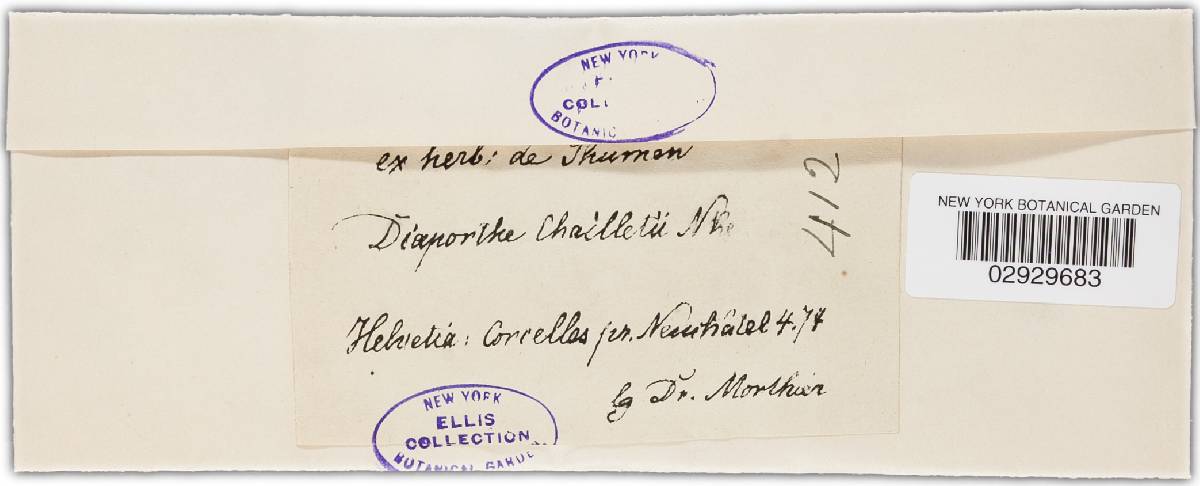 NEW YORK
COLL
BOTANIC
ex herb: de Thumen
Diaporthe Chailletii Nke
412
Helvetia: Corcelles pr. Neuchâtel 4.74
lg Dr. Morthier
NEW YORK
ELLIS
COLLECTION
BOTANICAL GARDE
NEW YORK BOTANICAL GARDEN
02929683